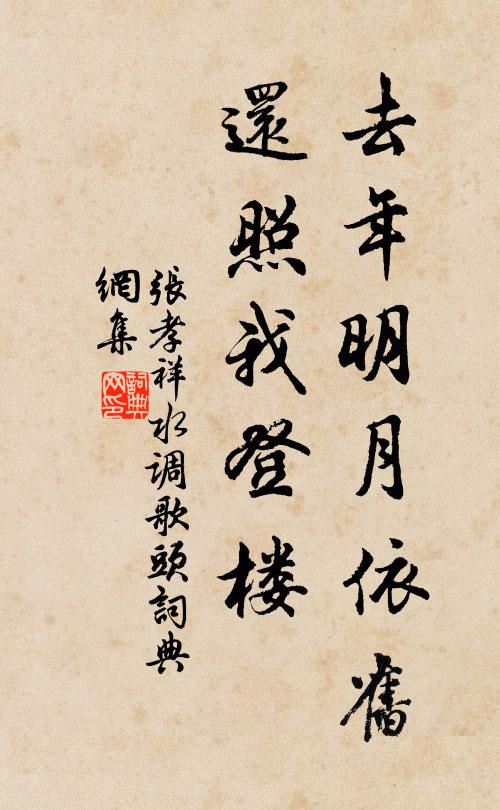 去年明月依舊
還照我登楼
張孝祥水调歌頭詞典
網集
詞典
网印